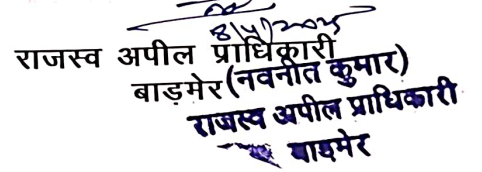 8/4/2025
राजस्व अपील प्राधिकारी
बाड़मेर (नवनीत कुमार)
राजस्व अपील प्राधिकारी
बाड़मेर